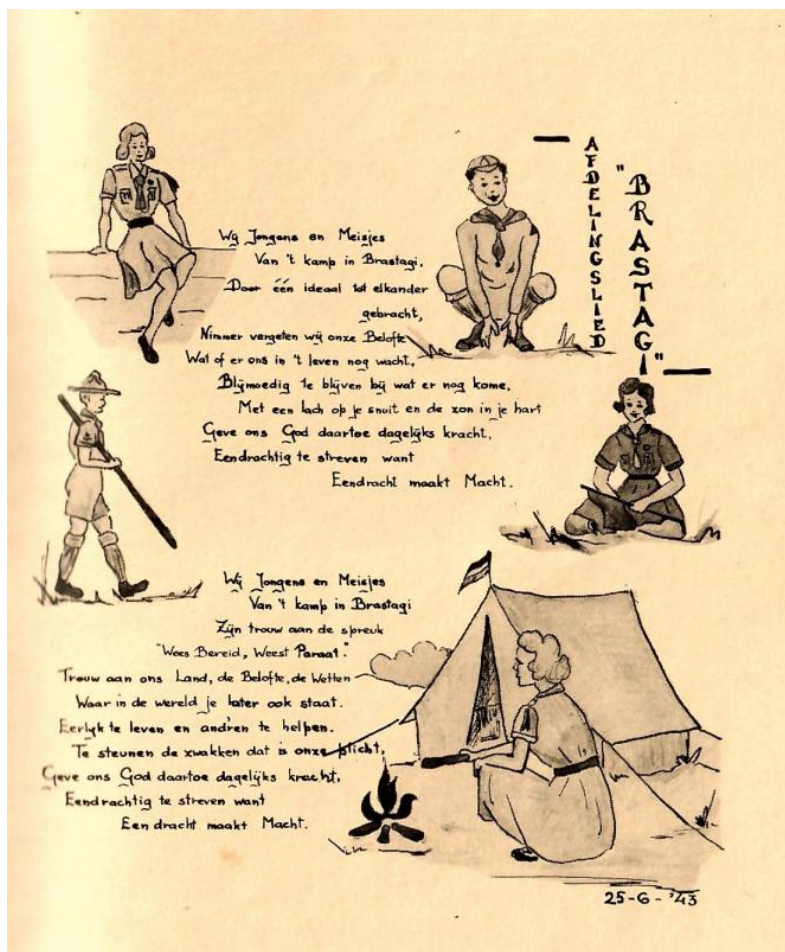 — AFDELINGSLIED
"BRASTAGI" —
Wij Jongens en Meisjes
Van 't kamp in Brastagi,
Door één ideaal tot elkander
gebracht,
Nimmer vergeten wij onze Belofte
Wat of er ons in 't leven nog wacht,
Blijmoedig te blijven bij wat er nog kome,
Met een lach op je snuit en de zon in je hart
Geve ons God daartoe dagelijks kracht,
Eendrachtig te streven want
Eendracht maakt Macht.
Wij Jongens en Meisjes
Van 't kamp in Brastagi
Zijn trouw aan de spreuk
"Wees Bereid, Weest Paraat."
Trouw aan ons Land, de Belofte, de Wetten
Waar in de wereld je later ook staat.
Eerlijk te leven en and'ren te helpen.
Te steunen de zwakken dat is onze plicht,
Geve ons God daartoe dagelijks kracht,
Eendrachtig te streven want
Een dracht maakt Macht.
25-6-'43